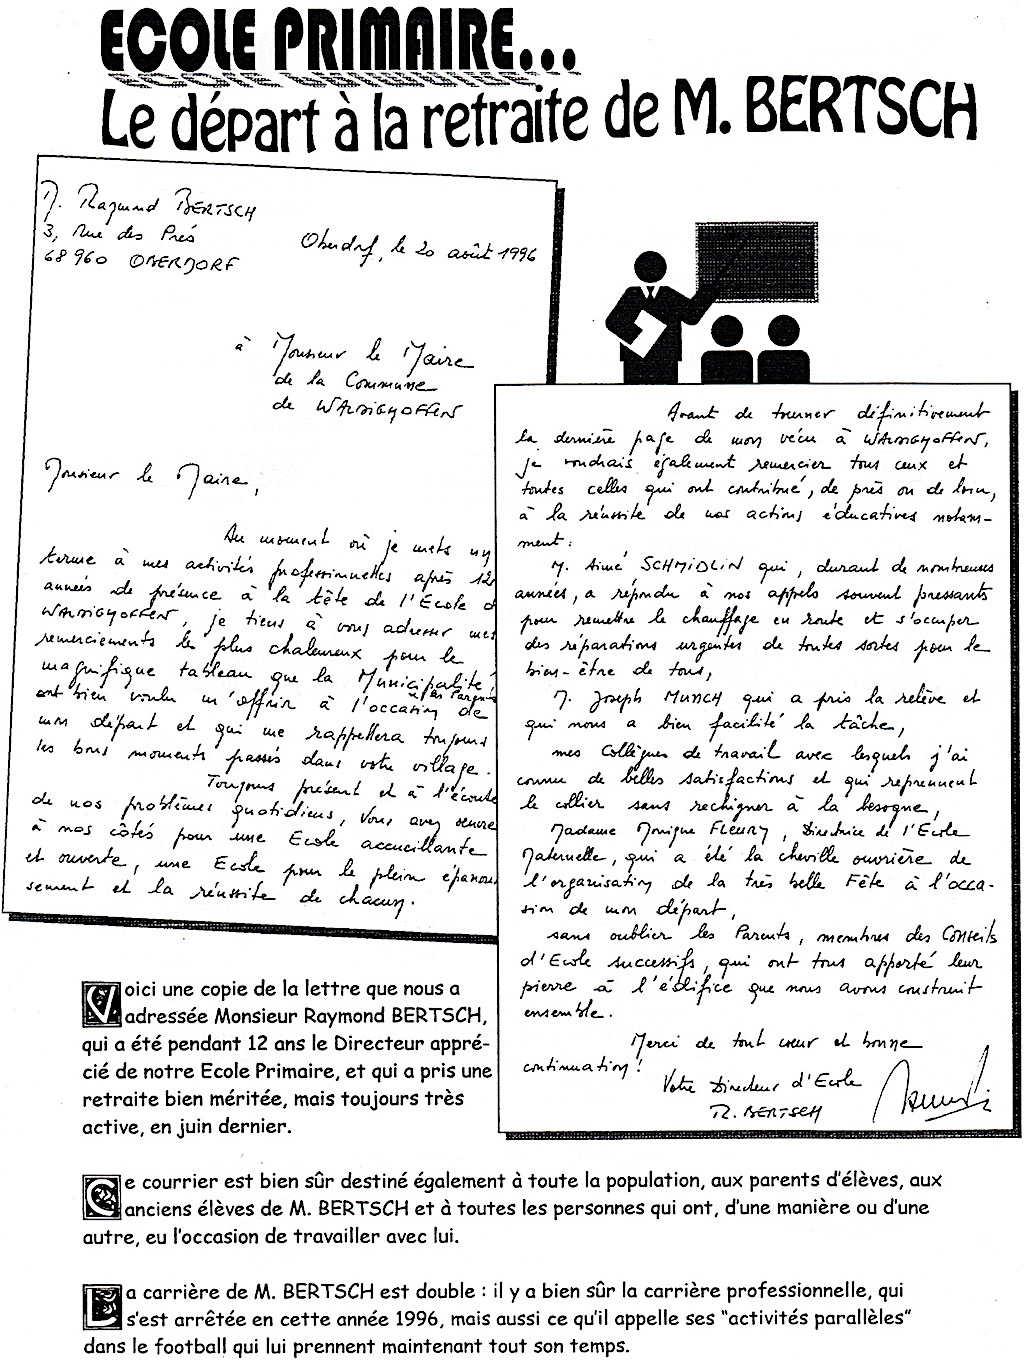 ECOLE PRIMAIRE...
Le départ à la retraite de M. BERTSCH
M. Raymond BERTSCH
3, Rue des Prés
68960 OBERDORF
Oberdorf, le 20 août 1996
à Monsieur le Maire
de la Commune
de WALDIGHOFFEN
Monsieur le Maire,
Au moment où je mets un
terme à mes activités professionnelles après 12
années de présence à la tête de l'Ecole d
WALDIGHOFFEN, je tiens à vous adresser mes
remerciements les plus chaleureux pour le
magnifique tableau que la Municipalité
et les Parents
ont bien voulu m'offrir à l'occasion de
mon départ et qui me rappellera toujours
les bons moments passés dans votre village.
Toujours présent et à l'écoute
de nos problèmes quotidiens, vous avez oeuvré
à nos côtés pour une Ecole accueillante
et ouverte, une Ecole pour le plein épanouis
sement et la réussite de chacun.
Avant de tourner définitivement
la dernière page de mon vécu à WALDIGHOFFEN,
je voudrais également remercier tous ceux et
toutes celles qui ont contribué, de près ou de loin,
à la réussite de nos actions éducatives notam-
ment :
M. Aimé SCHMIDLIN qui, durant de nombreuses
années, a répondu à nos appels souvent pressants
pour remettre le chauffage en route et s'occuper
des réparations urgentes de toutes sortes pour le
bien-être de tous,
M. Joseph MUNCH qui a pris la relève et
qui nous a bien facilité la tâche,
mes Collègues de travail avec lesquels j'ai
connu de belles satisfactions et qui reprennent
le collier sans rechigner à la besogne,
Madame Monique FLEURY, Directrice de l'Ecole
Maternelle, qui a été la cheville ouvrière de
l'organisation de la très belle Fête à l'occa-
sion de mon départ,
sans oublier les Parents, membres des Conseils
d'Ecole successifs, qui ont tous apporté leur
pierre à l'édifice que nous avons construit
ensemble.
Merci de tout coeur et bonne
continuation !
Votre Directeur d'Ecole
R. BERTSCH
Voici une copie de la lettre que nous a
adressée Monsieur Raymond BERTSCH,
qui a été pendant 12 ans le Directeur appré-
cié de notre Ecole Primaire, et qui a pris une
retraite bien méritée, mais toujours très
active, en juin dernier.
Ce courrier est bien sûr destiné également à toute la population, aux parents d'élèves, aux
anciens élèves de M. BERTSCH et à toutes les personnes qui ont, d'une manière ou d'une
autre, eu l'occasion de travailler avec lui.
La carrière de M. BERTSCH est double : il y a bien sûr la carrière professionnelle, qui
s'est arrêtée en cette année 1996, mais aussi ce qu'il appelle ses "activités parallèles"
dans le football qui lui prennent maintenant tout son temps.